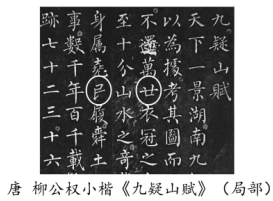 九疑山賦
天下一景湖南九
以為據考其圖而
不還萬世衣冠之
至十分山水之奇
身属堯巳履舜土
事數千年百千載
跡七十二三十六
唐 柳公权小楷《九疑山赋》（局部）